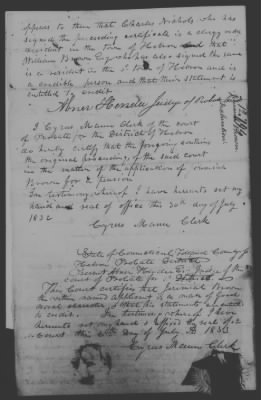 appears to them that Charles Nichols who has
signed the preceding certificate is a clergyman
resident in the town of Hebron and that
William Brown Esq who has also signed the same
is a resident in the sd Town of Hebron and is
a credible person and that their statement is
entitled to credit
Abner Hendee Judge of Probate
I Cyrus Mann Clerk of the court
of Probate for the District of Hebron
do hereby certify that the foregoing contains
the original proceedings of the said court
in the matter of the application of
Brown for a pension
In testimony whereof I have hereunto set my
hand and seal of office this 30th day of July
1832
Cyrus Mann Clerk
State of Connecticut, County ss
Hebron Probate District
Present Abner Hendee Judge of the
Court of Probate for sd District
This Court certifies that Jeremiah Brown
the within named applicant is a man of good
moral character & that his statement is entitled
to credit. In testimony whereof I have
hereunto set my hand & affixed the seal of sd
Court this day of July AD 1832
Cyrus Mann Clerk